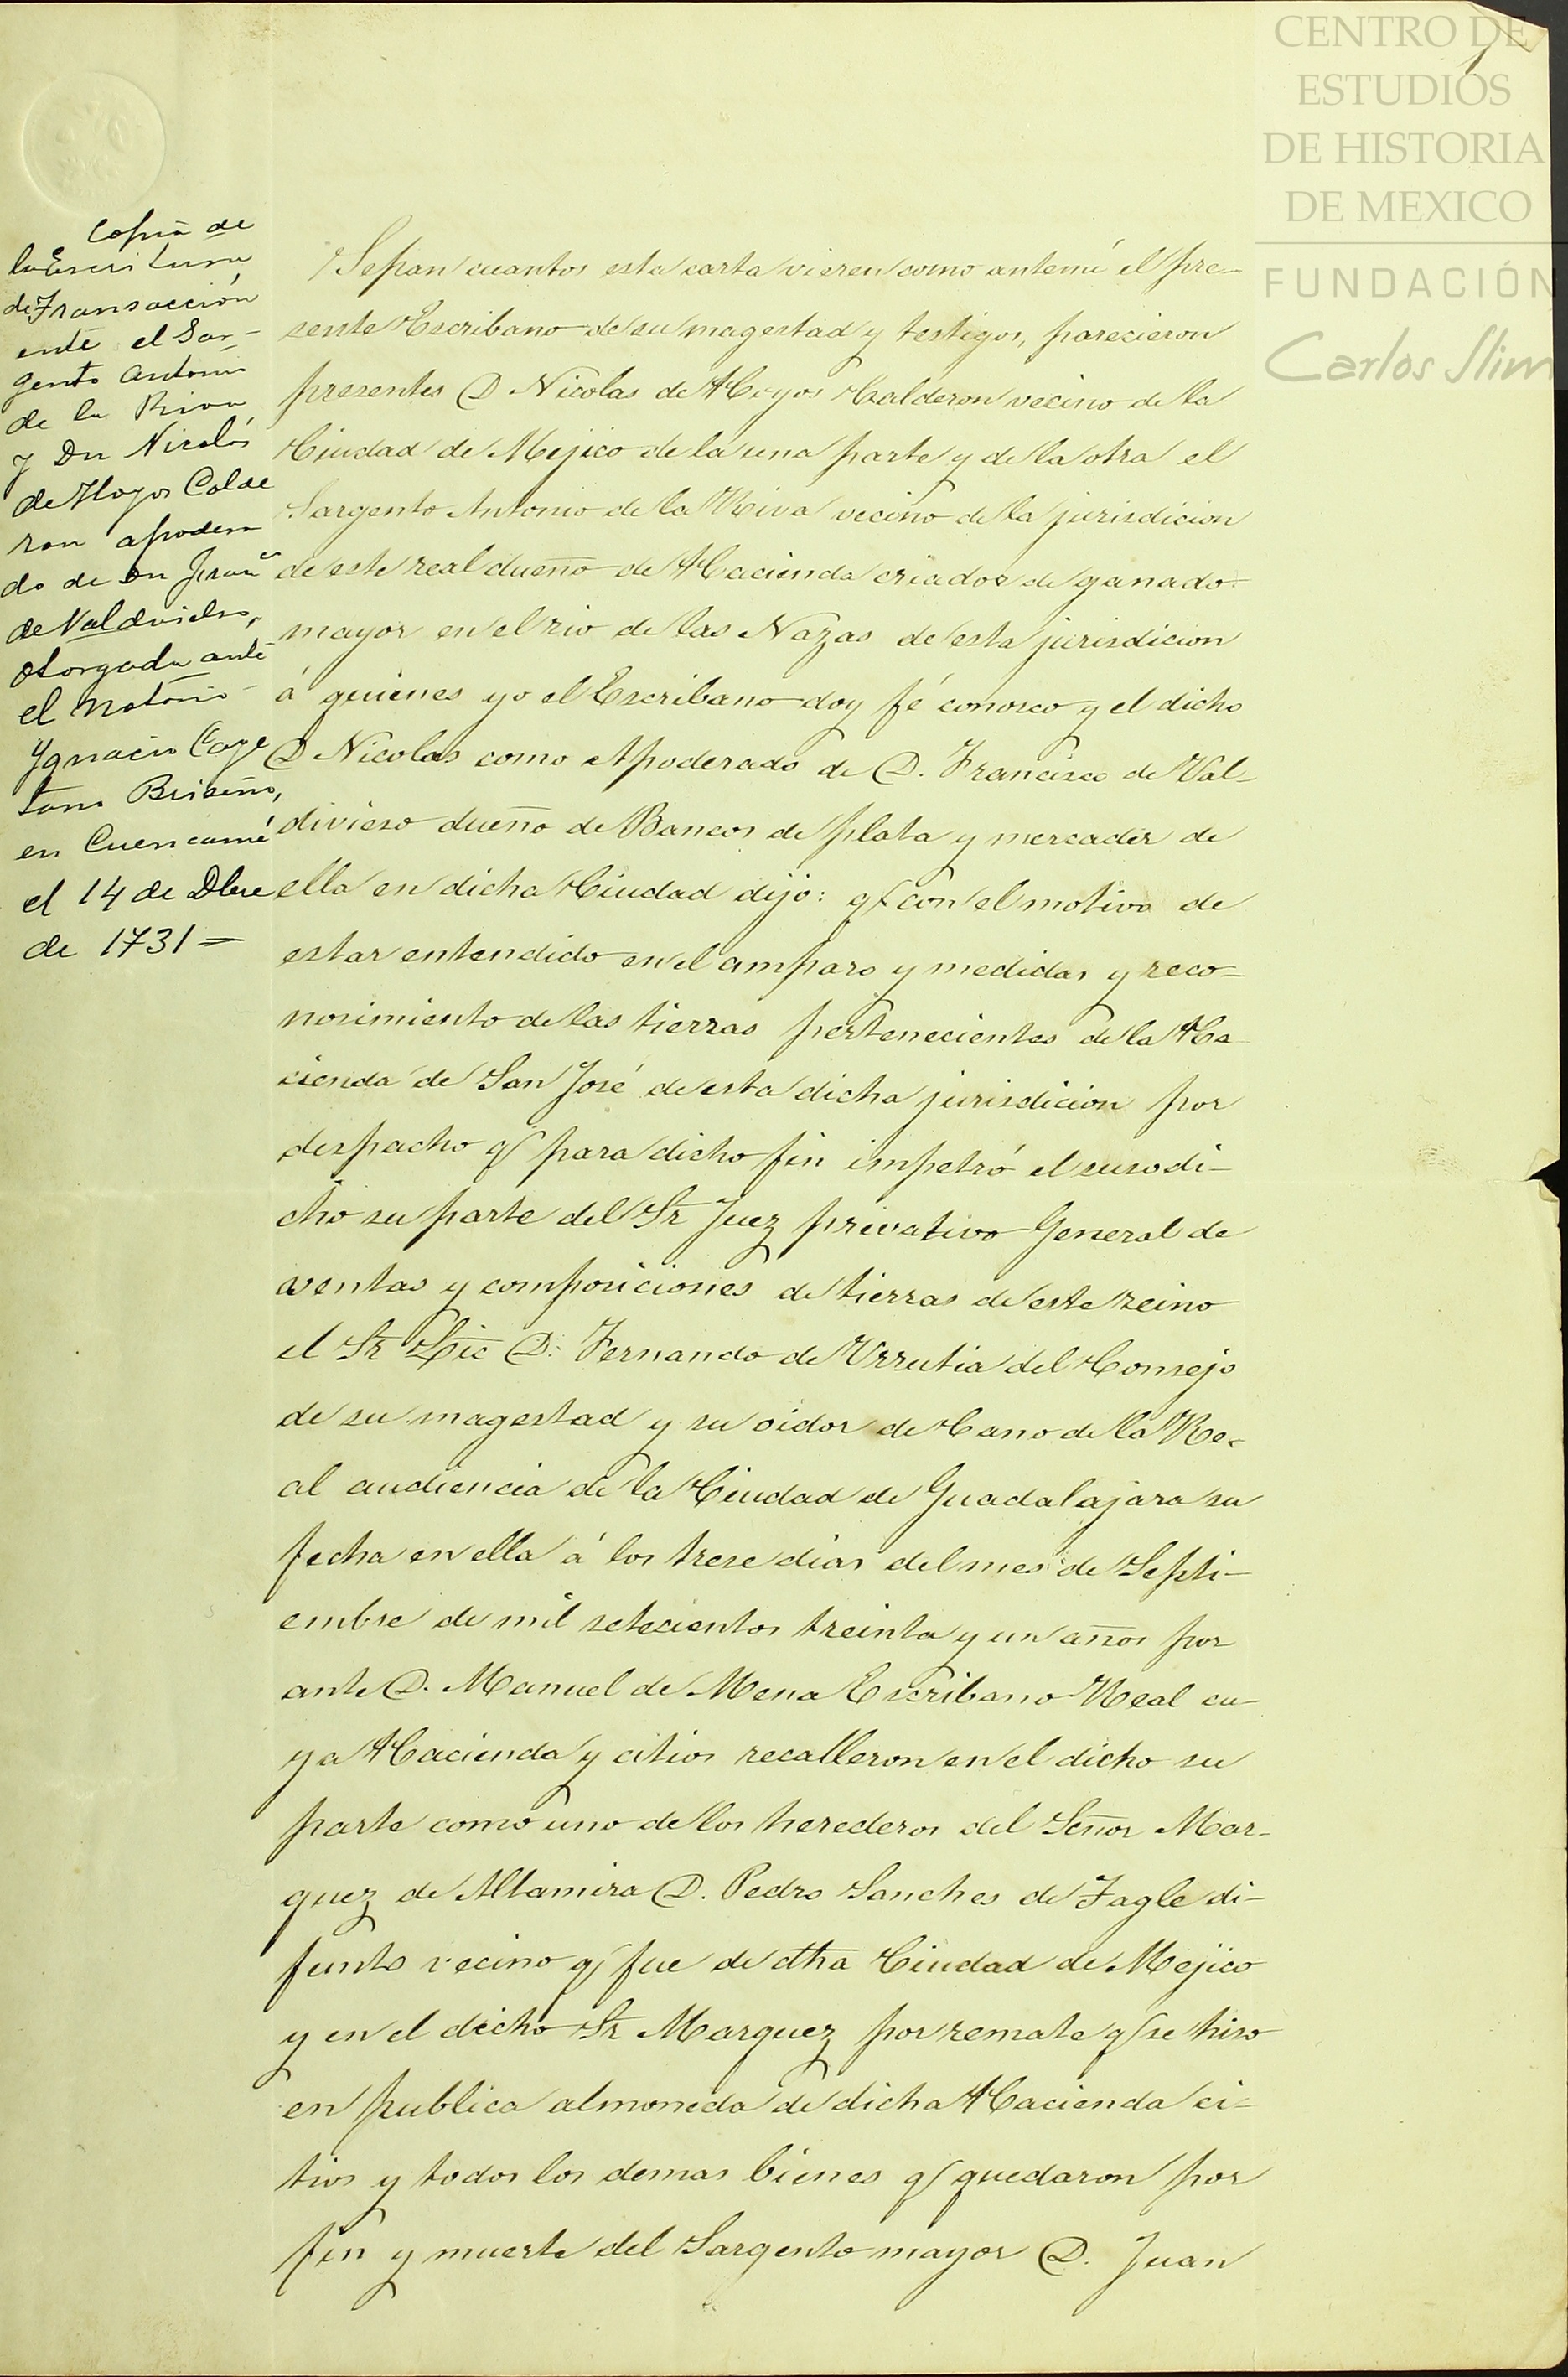 CENTRO DE
ESTUDIOS
DE HISTORIA
DE MEXICO
FUNDACIÓN
Carlos Slim
1
Copia de
la Escritura
de Transacción
ente el Sar-
gento Antonio
de la Riva
y Dn Nicolás
de Hoyos Calde
ron apodera
do de Dn Franco
de Valdivielso,
otorgada ante
el Notario
Ygnacio Caye
tano Briseño,
en Cuencamé
el 14 de Dbre
de 1731=
Sepan cuantos esta carta vieren como antemi el pre-
sente Escribano de su magestad y testigos, parecieron
presentes D Nicolas de Hoyos Calderon vecino de la
Ciudad de Mejico de la una parte y de la otra el
Sargento Antonio de la Riva vecino de la jurisdicion
de este real dueño de Hacienda criador de ganado
mayor en el rio de las Nazas de esta jurisdicion
á quienes yo el Escribano doy fé conosco y el dicho
D Nicolas como Apoderado de D. Francisco de Val-
divieso dueño de Bancos de plata y mercader de
ella en dicha Ciudad dijo: q con el motivo de
estar entendido en el amparo y medidas y reco-
nosimiento de las tierras pertenecientes de la Ha-
cienda de San José de esta dicha jurisdicion por
despacho q para dicho fin impetró el susodi-
cho su parte del Sr Juez privativo General de
ventas y composiciones de tierras de este reino
el Sr Lic D. Fernando de Urrutia del Consejo
de su magestad y su oidor de Cano de la Re-
al audiencia de la Ciudad de Guadalajara su
fecha en ella á los trese dias del mes de Septi-
embre de mil setecientos treinta y un años por
ante D. Manuel de Mena Escribano Real cu-
ya Hacienda y citios recalleron en el dicho su
parte como uno de los herederos del Señor Mar-
quez de Altamira D. Pedro Sanches de Tagle di-
funto vecino q fue de dha Ciudad de Mejico
y en el dicho Sr Marquez por remate q se hiso
en publica almoneda de dicha Hacienda ci-
tios y todos los demas bienes q quedaron por
fin y muerte del Sargento mayor D. Juan